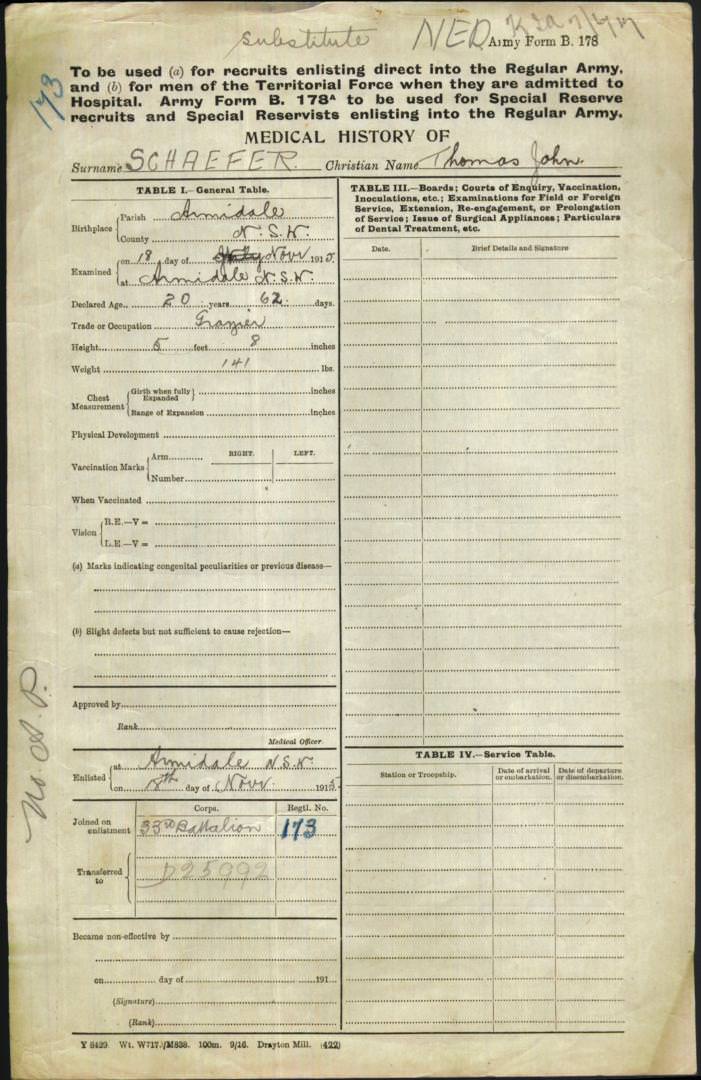 substitute NED KIA 7/6/17
Army Form B. 178
173
To be used (a) for recruits enlisting direct into the Regular Army,
and (b) for men of the Territorial Force when they are admitted to
Hospital. Army Form B. 178A to be used for Special Reserve
recruits and Special Reservists enlisting into the Regular Army.
MEDICAL HISTORY OF
Surname SCHAEFER. Christian Name Thomas John.
TABLE I.—General Table.
Birthplace
Parish Armidale
County N.S.W.
Examined
on 18 day of Novr 1915.
at Armidale N.S.W.
Declared Age 20 years 62 days.
Trade or Occupation Grazier
Height 5 feet 8 inches
Weight 141 lbs.
Chest Measurement
Girth when fully Expanded inches
Range of Expansion inches
Physical Development
Vaccination Marks
Arm RIGHT. LEFT.
Number
When Vaccinated
Vision
R.E.—V =
L.E.—V =
(a) Marks indicating congenital peculiarities or previous disease—
(b) Slight defects but not sufficient to cause rejection—
Approved by
Rank
Medical Officer.
Enlisted
at Armidale N.S.W.
on 8th day of Novr. 1915.
Corps. Regtl. No.
Joined on enlistment 33rd Battalion 173
Transferred to D25992
Became non-effective by
on day of 191
(Signature)
(Rank)
TABLE III.—Boards; Courts of Enquiry, Vaccination,
Inoculations, etc.; Examinations for Field or Foreign
Service, Extension, Re-engagement, or Prolongation
of Service; Issue of Surgical Appliances; Particulars
of Dental Treatment, etc.
Date. Brief Details and Signature
TABLE IV.—Service Table.
Station or Troopship. Date of arrival or embarkation. Date of departure or disembarkation.
Y 8429. Wt. W717./M838. 100m. 9/16. Drayton Mill. (422)